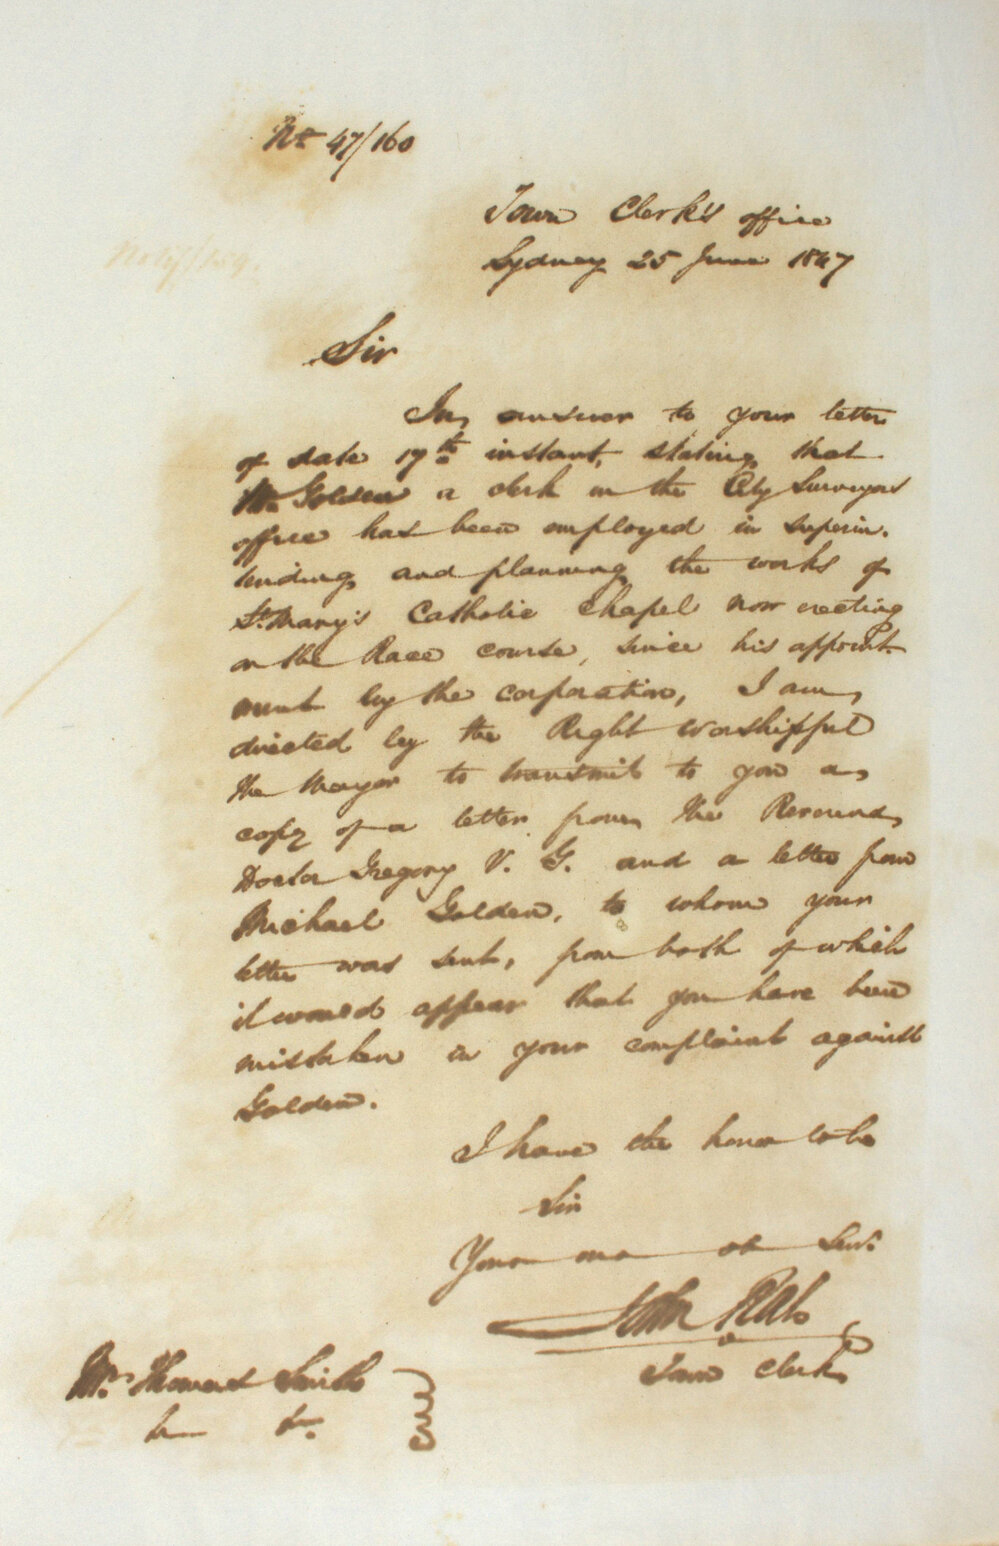 No 47/160
Town Clerk's office
Sydney 25 June 1847
Sir
In answer to your letter
of date 17th instant, stating that
Mr Golden a clerk in the City Surveyors
office has been employed in superin-
tending and planning the works of
St. Mary's Catholic Chapel now erecting
on the Race course, since his appoint-
ment by the corporation, I am
directed by the Right Worshipful
the Mayor to transmit to you a
copy of a letter from the Reverend
Doctor Gregory V. G. and a letter from
Michael Golden, to whom your
letter was sent, from both of which
it would appear that you have been
mistaken in your complaint against
Golden.
I have the honor to be
Sir
Your mo ob Serv.
John Rae
Town Clerk
Mr. Thomas Smith